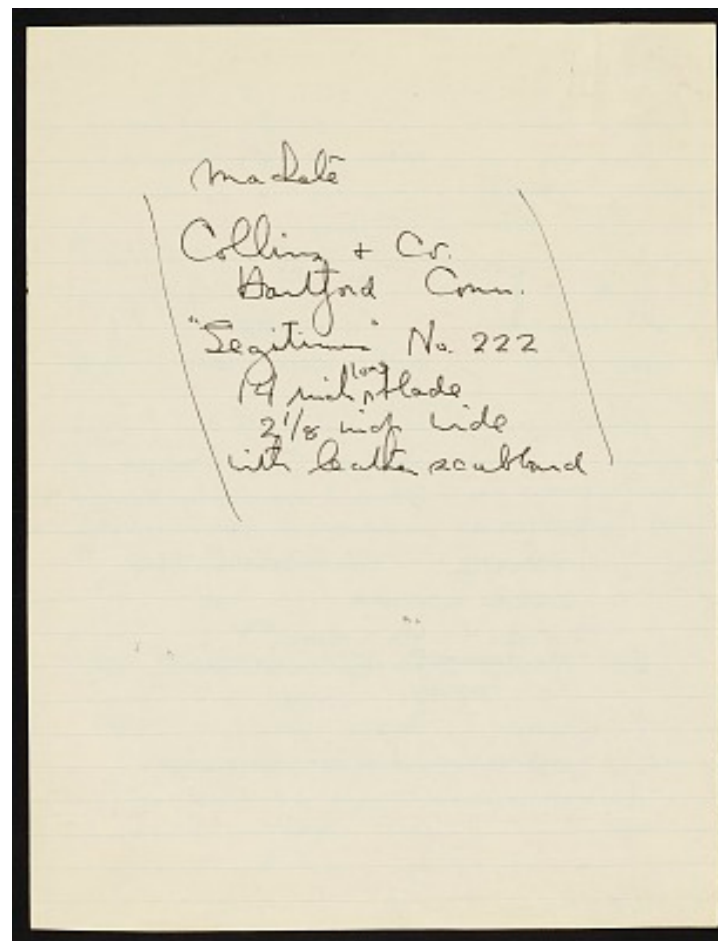 machete
Collins + Co.
Hartford Conn.
"Legitimus" No. 222
14 inch long blade
2 1/8 inch wide
with leather scabbard